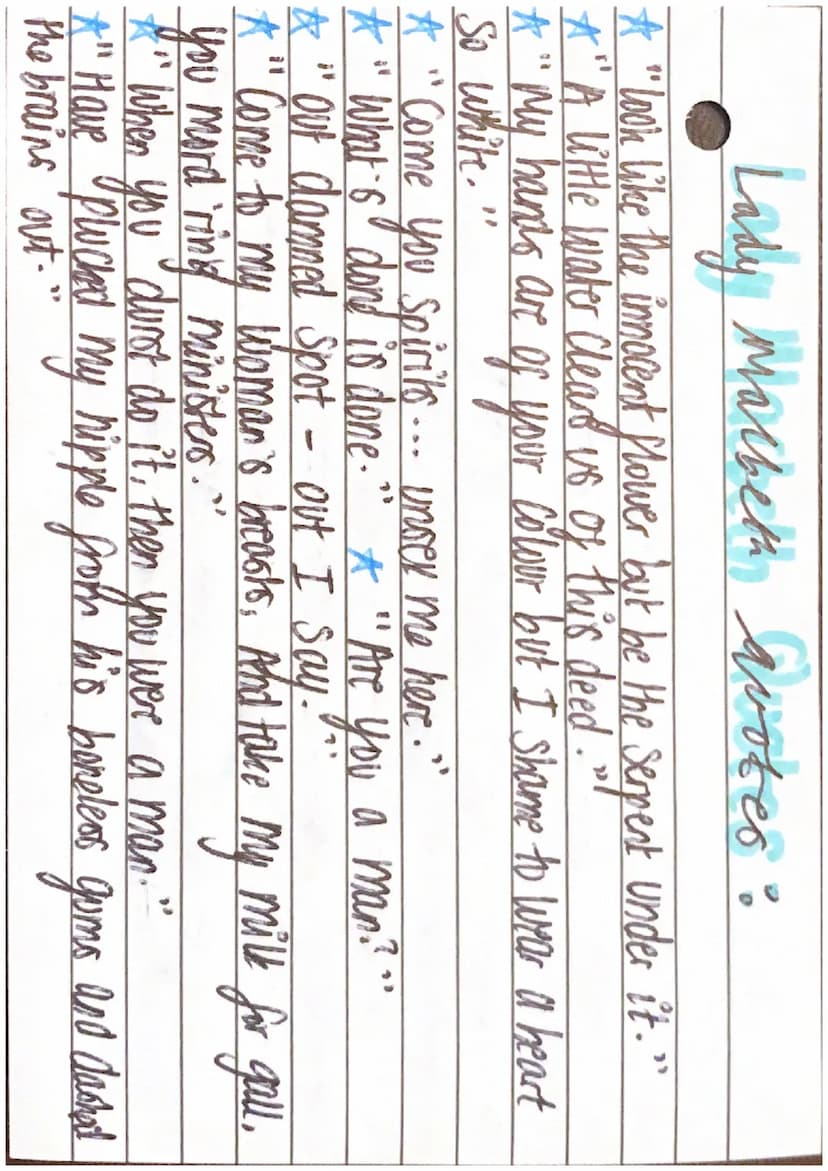 Lady Macbeth Quotes:
☆ "Look like the innocent flower but be the serpent under it."
☆ "A little water clears us of this deed."
☆ "My hands are of your colour but I shame to wear a heart
so white."
☆ "Come you spirits... unsex me here."
☆ "What's done is done." ☆ "Are you a man?"
☆ "Out damned spot - out I say."
☆ "Come to my woman's breasts, And take my milk for gall,
you murd'ring ministers."
☆ "When you durst do it, then you were a man."
☆ "Have plucked my nipple from his boneless gums and dashed
the brains out."